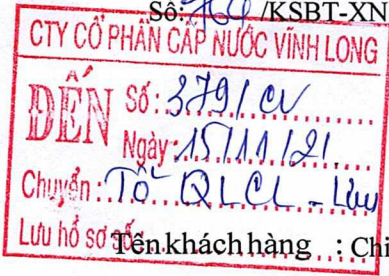 Số: /KSBT-XN
CTY CỔ PHẦN CẤP NƯỚC VĨNH LONG
ĐẾN Số: 379/CV
Ngày: 15/11/21
Chuyển: Tổ QLCL - Lưu
Lưu hồ sơ số
Tên khách hàng : Chi